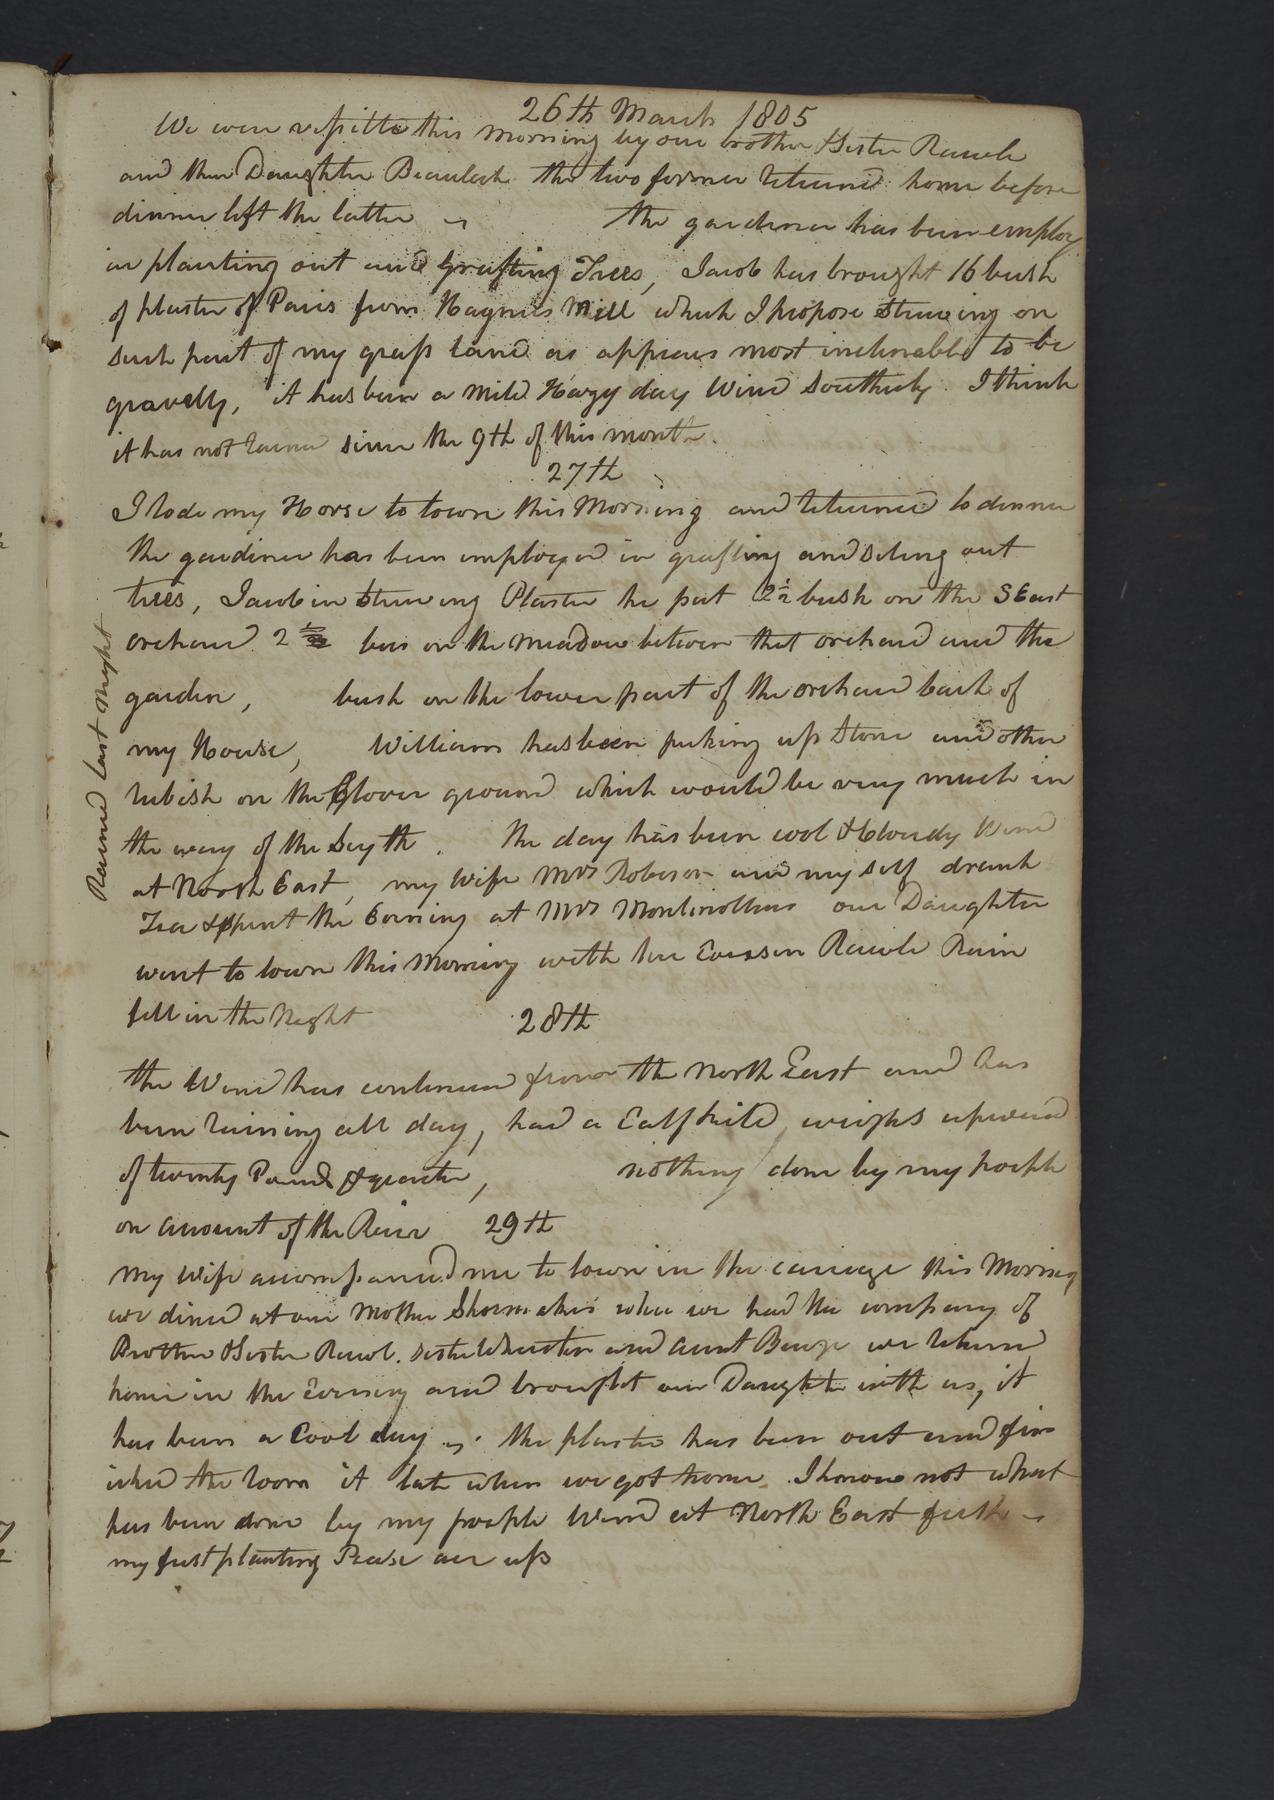 26th March 1805
We were visitted this Morning by our brother & Sister Rawle
and their Daughter Beaulah the two former returned home before
dinner left the latter the gardiner has been employ
in planting out and Grafting Trees, Jacob has brought 16 bush
of plaster of Paris from Hagnes Mill which I propose Strewing on
such part of my grass land as appears most inclinable to be
gravelly, it has been a mild Hazy day Wind Southerly. I think
it has not rained since the 9th of this month.
27th
I rode my Horse to town this Morning and returned to dinner
the gardiner has been employed in grafting and seting out
trees, Jacob in Strewing Plaster he put 2½ bush on the S East
orchard 2 bus on the Meadow between that orchard and the
garden, bush on the lower part of the orchard back of
my House, William has been picking up Stone and other
rubish on the Clover ground which would be very much in
the way of the Syth. the day has been cool & Cloudy Wind
at North East, my Wife Mrs Roberson and my self drank
Tea & Spent the Evening at Mrs our Daughter
went to town this Morning with her Coussen Rawle Rain
fell in the Night
Rained last Night
28th
the Wind has continued from the North East and has
been raining all day, had a Calf kild weighs upward
of twenty Pound & quarter, nothing done by my people
on account of the Rain 29th
My Wife accompanied me to town in the carriage this Morning
we dined at our Mother Shoemakers where we had the company of
Brother & Sister Rawl. Sister and Aunt we returnd
home in the Evening and brought our Daughter with us, it
has been a Cool day the plaster has been out and fine
the loom it late when we got home. I know not what
has been done by my people Wind at North East fresh
my first planting Pease are up